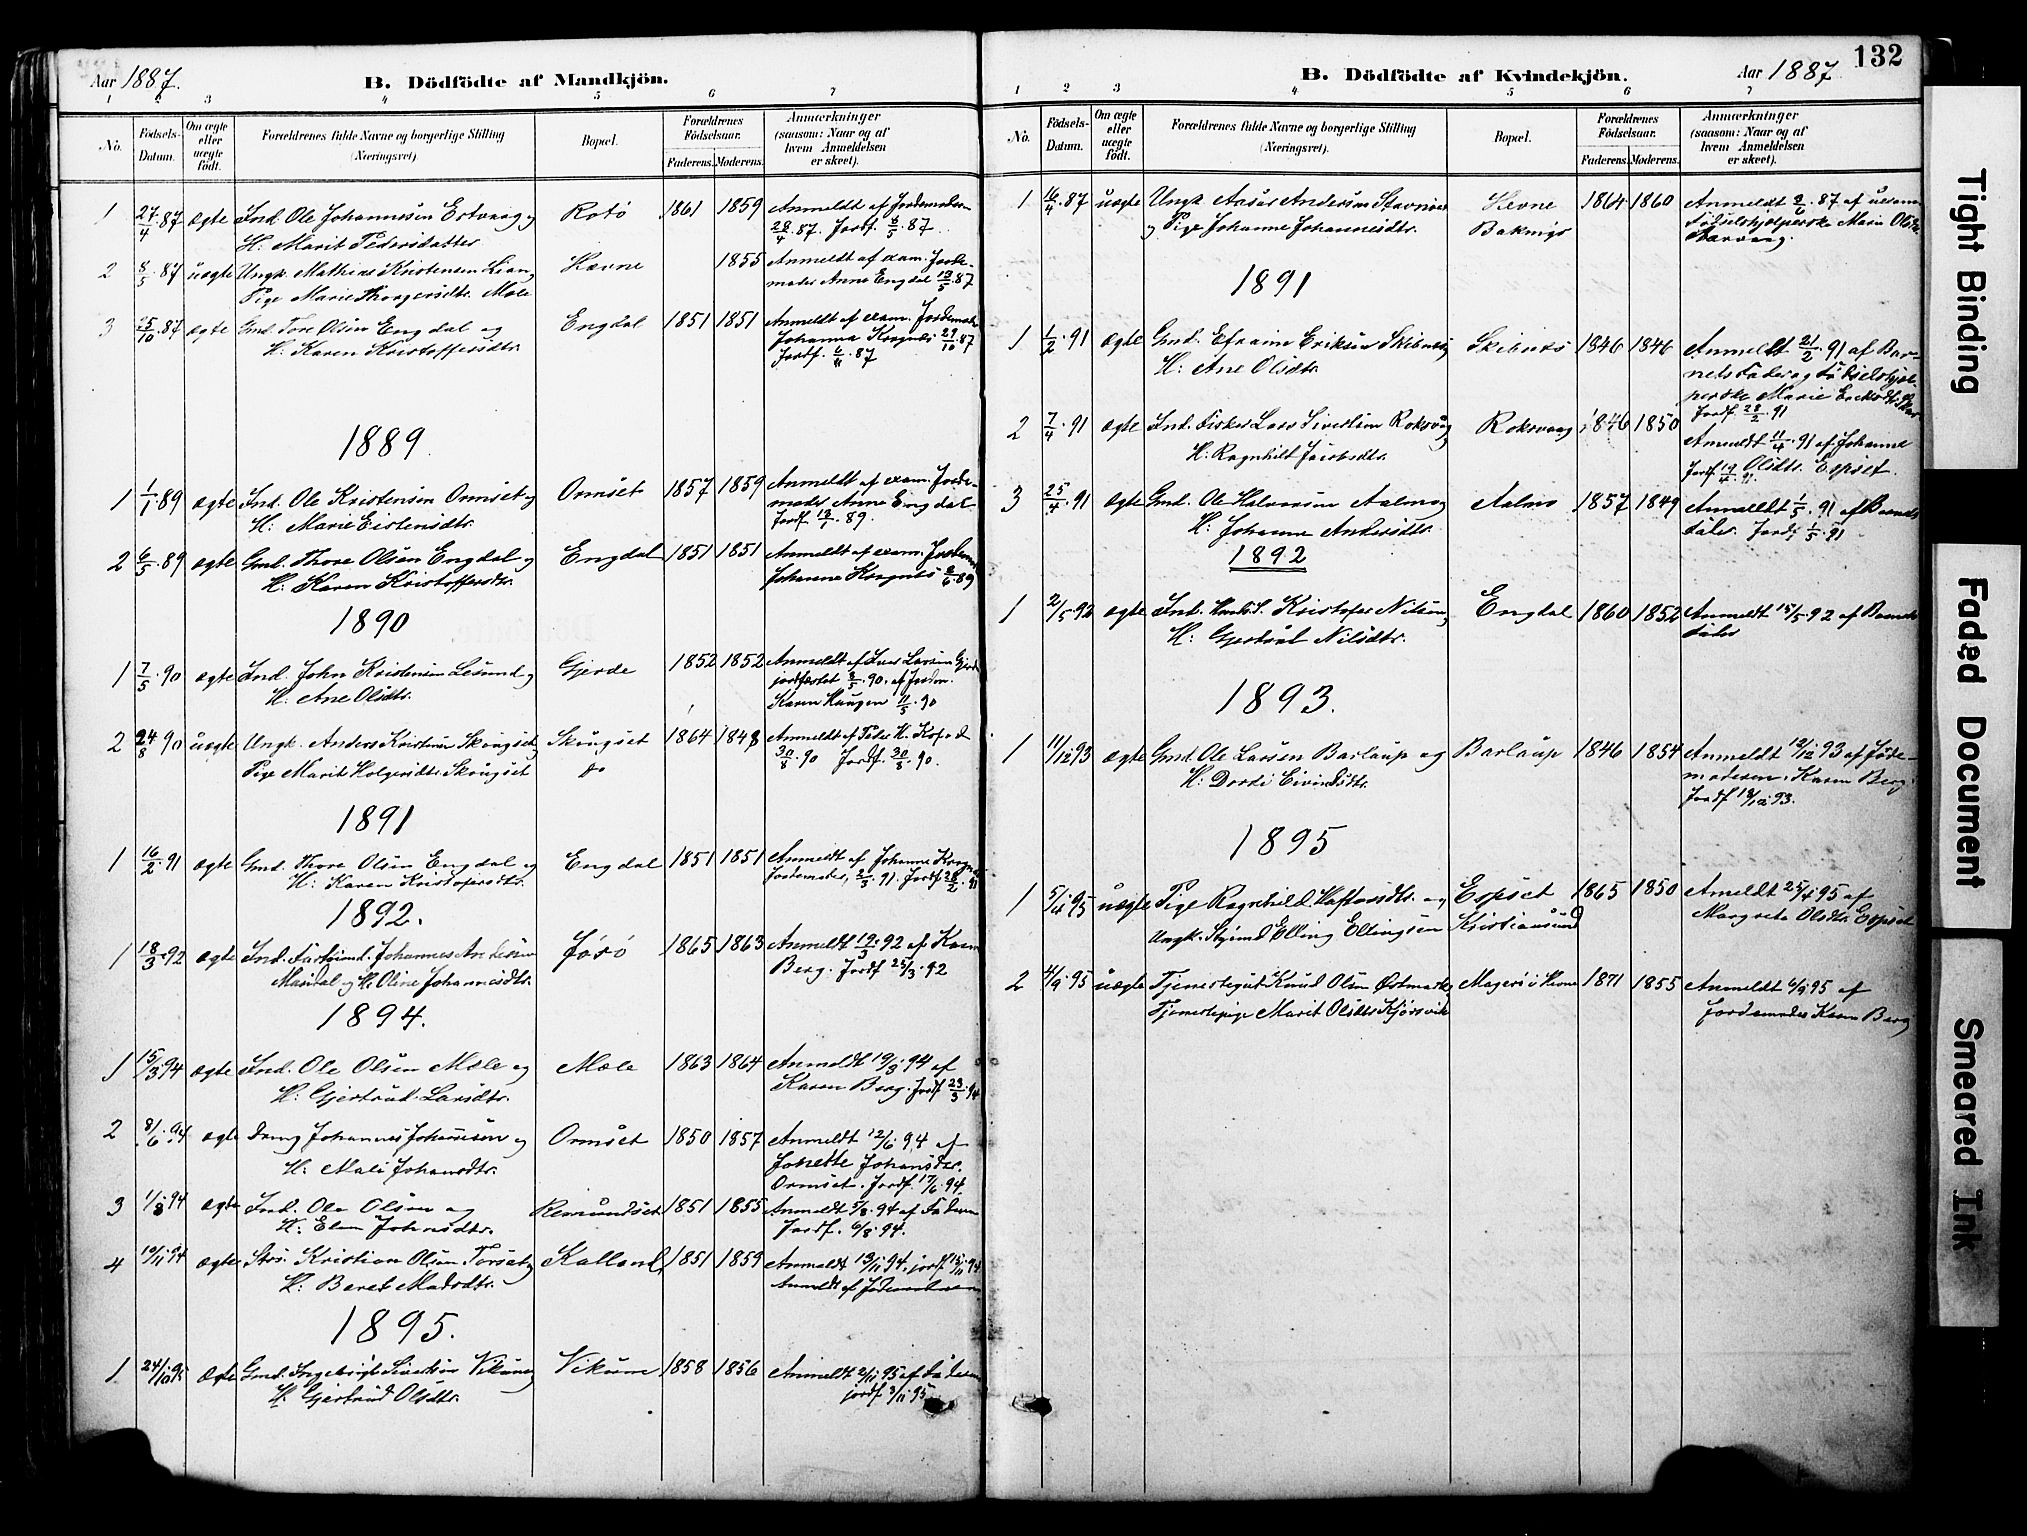 Aar 1887.
B. Dödfödte af Mandkjön.
1 2 3 4 5 6 7
No.
Födsels-Datum.
Om ægte eller uægte födt.
Forældrenes fulde Navne og borgerlige Stilling (Næringsvei).
Bopæl.
Forældrenes Födselsaar.
Faderens. Moderens.
Anmærkninger (saasom: Naar og af hvem Anmeldelsen er skeet).
1 27/4 87 ægte Ind. Ole Johannesen Ertvaag og Rotö 1861 1859 Anmeldt af Jordemoderen
H: Marit Pedersdatter 28/4 87. Jordf. 6/5 87
2 8/5 87 uægte Ungk. Mathias Kristensen Lian og Hævne 1855 Anmeldt af exam. Jorde-
Pige Marie Thorgersdtr. Mæle moder Anne Engdal 13/5 87
3 25/10 87 ægte Gmd. Tore Olsen Engdal og Engdal 1851 1851 Anmeldt af exam. Jordemoder
H: Karen Kristoffersdtr. Johanna Krognes 29/10 87
Jordf. 6/11 87
1889.
1 1/1 89 ægte Ind. Ole Kristensen Ormset og Ormset 1857 1859 Anmeldt af exam. Jorde-
H: Marie Eistensdtr. moder Anne Engdal
Jordf. 13/1 89.
2 6/5 89 ægte Gmd. Thore Olsen Engdal og Engdal 1851 1851 Anmeldt af exam. Jordem.
H: Karen Kristoffersdtr. Johanne Krognes 2/6 89
1890
1 7/5 90 ægte Ind. John Kristensen Lesund og Gjerde 1852 1852 Anmeldt af Lars Larsen Gjerde
H: Ane Olsdtr. jordfæstet 8/5 90. af Jordm.
Karen Haugen 11/5 90
2 24/8 90 uægte Ungk. Anders Kristensen Skougset Skougset 1864 1848 Anmeldt af Peder H.
Pige Marit Holgersdtr. Skougset do 30/8 90 Jordf. 30/8 90.
1891
1 16/2 91 ægte Gmd. Thore Olsen Engdal og Engdal 1851 1851 Anmeldt af Johanne Krognes
H: Karen Kristofersdtr. Jordemoder, 2/3 91. Jordf. 28/2 91
1892.
1 18/3 92 ægte Ind. Johannes Andersen Jörö 1865 1863 Anmeldt 19/3 92 af Karen
og H. Oline Johannesdtr. Berg. Jordf 25/3 92
1894.
1 15/3 94 ægte Ind. Ole Olsen Mæle og Mæle 1863 1864 Anmeldt 19/3 94 af
H. Gjertrud Larsdtr. Karen Berg. Jordf 23/3 94
2 8/6 94 ægte Johannes Johansen og Ormset 1850 1857 Anmeldt 12/6 94 af
H. Mali Johansdtr. Johansdtr.
Ormset. Jordf. 17/6 94.
3 1/8 94 ægte Ind. Ole Olsen og Remundset 1851 1855 Anmeldt 5/8 94 af Faderen
H. Elen Johnsdtr. Jordf. 6/8 94.
4 10/11 94 ægte Kristian Olsen Torset og Kalland 1851 1859 Anmeldt 13/11 94, jordf 15/11 94
H. Beret Madsdtr. Anmeldt af Jordemoderen
1895.
1 24/10 95 ægte Gmd. Ingebrigt Sivertsen Vikum og Vikum 1858 1856 Anmeldt 2/11 95 af Faderen
H. Gjertrud Olsdtr. jordf 3/11 95
132
B. Dödfödte af Kvindekjön.
Aar 1887
1 2 3 4 5 6 7
No.
Födsels-Datum.
Om ægte eller uægte födt.
Forældrenes fulde Navne og borgerlige Stilling (Næringsvei).
Bopæl.
Forældrenes Födselsaar.
Faderens. Moderens.
Anmærkninger (saasom: Naar og af hvem Anmeldelsen er skeet).
1 16/4 87 uægte Ungk. Andersen Stavnes Hevne 1864 1860 Anmeldt 87 af uexam.
og Pige Johanne Johannesdtr. Födselshjelperske Marie Olsdtr.
1891
1 1/2 91 ægte Gmd. Efraim Eriksen Skibnes og Skibnes 1846 1846 Anmeldt 21/2 91 af Bar-
H: Ane Olsdtr. nets Fader og Födselshjæl-
perske Marie
Jordf. 28/2 91
2 7/4 91 ægte Ind. Fisker Lars Sivertsen Roksvåg Roksvaag 1846 1850
H: Ragnhild Jacobsdtr. Anmeldt 11/4 91 af Johanne
Jordf. 19/4 91. Olsdtr. Espset
3 25/4 91 ægte Gmd. Ole Halvorsen Aalmo og Aalmo 1857 1849 Anmeldt 1/5 91 af Barnets
H: Johanne Andersdtr. Fader. Jordf 1/5 91
1892
1 2/5 92 ægte Ind. Kristofer Nilsen Engdal 1860 1852 Anmeldt 15/5 92 af Barnets
H: Gjertrud Nilsdtr. Fader
1893.
1 11/12 93 ægte Gmd. Ole Larsen Barlaup og Barlaup 1846 1854 Anmeldt 12/12 93 af Jorde-
H: Dordi Eivindsdtr. moderen. Karen Berg.
Jordf 18/12 93.
1895
1 5/4 95 uægte Pige Ragnhild og Espset 1865 1850 Anmeldt 25/4 95 af
Ungk. Elling Ellingsen Kristiansund Margrete Olsdtr. Espset
2 4/9 95 uægte Tjenestegut Knud Olsen Østmark og Magerö i Hevne 1871 1855 Anmeldt 6/9 95 af
Tjenestepige Marit Olsdtr. Kjörsvik Jordemoder Karen Berg
Tight Binding
Faded Document
Smeared Ink